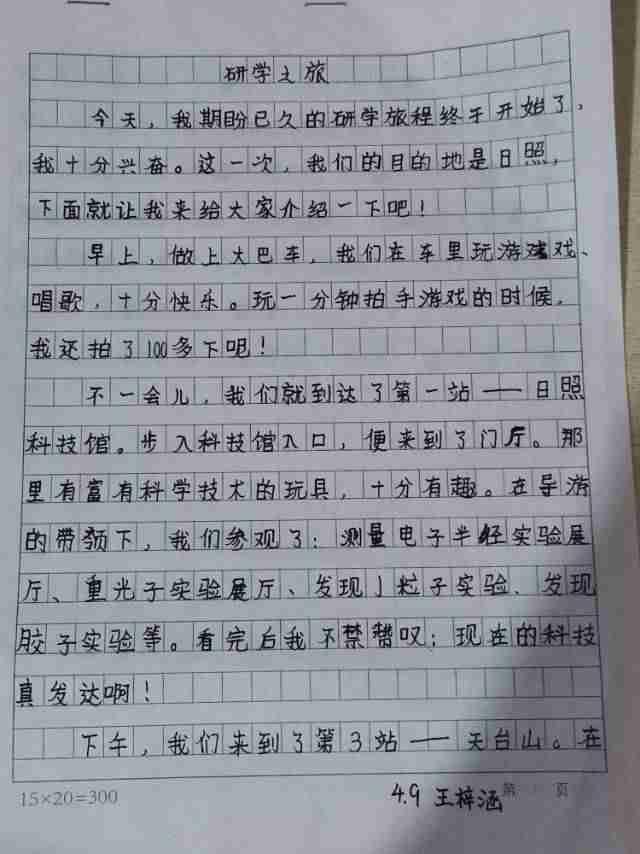 研学之旅
今天，我期盼已久的研学旅程终于开始了，
我十分兴奋。这一次，我们的目的地是日照，
下面就让我来给大家介绍一下吧！
早上，做上大巴车，我们在车里玩游戏、
唱歌，十分快乐。玩一分钟拍手游戏的时候，
我还拍了100多下呢！
不一会儿，我们就到达了第一站——日照
科技馆。步入科技馆入口，便来到了门厅。那
里有富有科学技术的玩具，十分有趣。在导游
的带领下，我们参观了：测量电子半径实验展
厅、重光子实验展厅、发现J粒子实验、发现
胶子实验等。看完后我不禁赞叹：现在的科技
真发达啊！
下午，我们来到了第3站——天台山。在
15×20=300
4.9 王梓涵
第 页